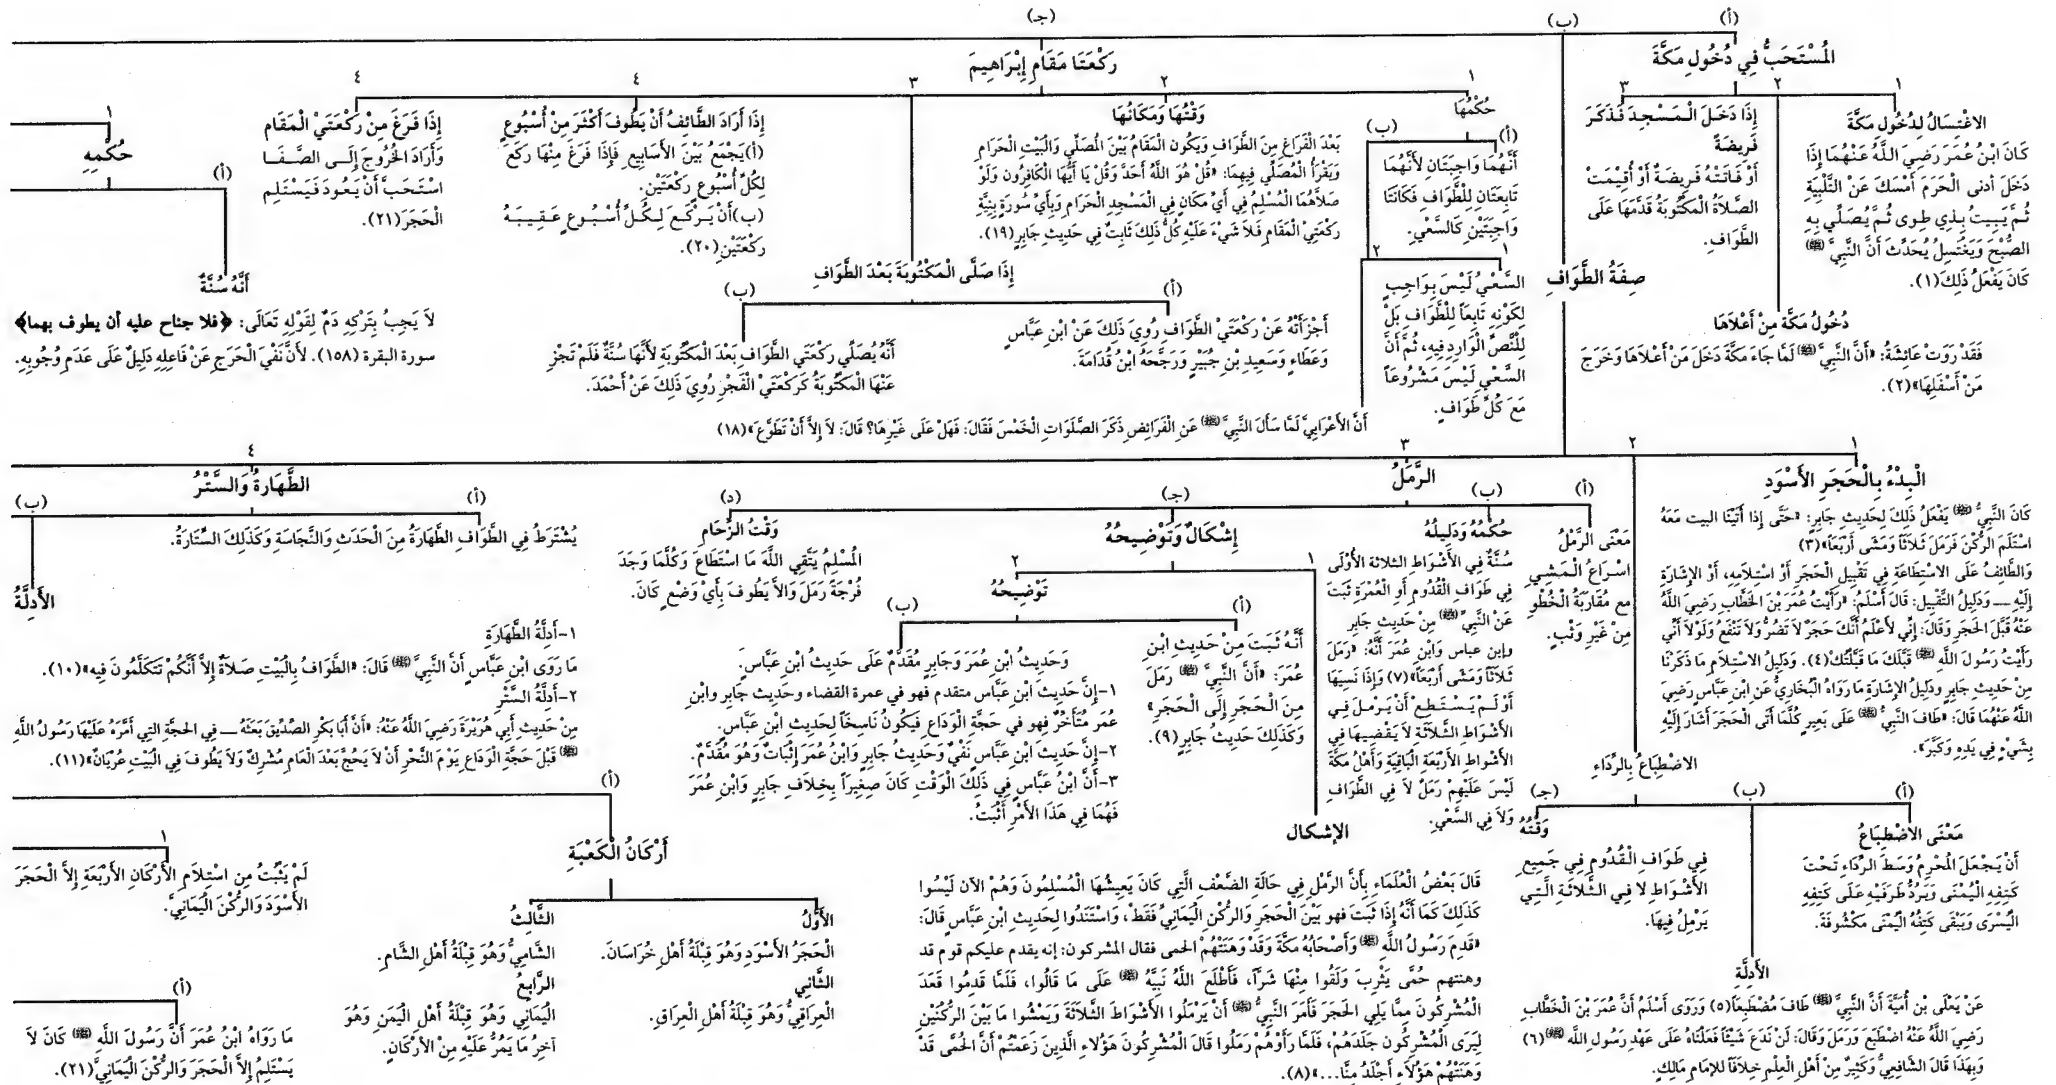 (أ)
(ب)
(جـ)
الْمُسْتَحَبُّ فِي دُخُولِ مَكَّةَ
١
٢
٣
الاغْتِسَالُ لدُخُولِ مَكَّةَ
كَانَ ابْنُ عُمَرَ رَضِيَ اللَّهُ عَنْهُمَا إِذَا
دَخَلَ أدنى الْحَرَمِ أَمْسَكَ عَنْ التَّلْبِيَةِ
ثُمَّ يَبِيتُ بِذِي طِوى ثُمَّ يُصَلِّي بِهِ
الصُّبْحَ وَيَغْتَسِلُ يُحَدِّثُ أَنَّ النَّبِيَّ ﷺ
كَانَ يَفْعَلُ ذَلِكَ(١).
دُخُولُ مَكَّةَ مِنْ أَعْلاَهَا
فَقَدْ رَوَتْ عَائِشَةُ: «أَنَّ النَّبِيَّ ﷺ لَمَّا جَاءَ مَكَّةَ دَخَلَ مَنْ أَعْلاَهَا وَخَرَجَ
مَنْ أَسْفَلِهَا»(٢).
إِذَا دَخَلَ الْمَسْجِدَ فَذَكَرَ
فَرِيضَةً
أَوْ فَاتَتْهُ فَرِيضَةٌ أَوْ أُقِيمَتْ
الصَّلاَةُ الْمَكْتُوبَةُ قَدَّمَهَا عَلَى
الطَّوَافِ.
صِفَةُ الطَّوَافِ
رَكْعَتَا مَقَامِ إِبْرَاهِيمَ
١
٢
٣
٤
٤
حُكْمُهَا
(أ)
(ب)
أَنَّهُمَا وَاجِبَتَانِ لأَنَّهُمَا
تَابِعَتَانِ لِلْطَّوَافِ فَكَانَتَا
وَاجِبَتَيْنِ كَالسَّعْيِ.
١
٢
السَّعْيُ لَيْسَ بِوَاجِبٍ
لِكَوْنِهِ تَابِعَاً لِلْطَّوَافِ بَلْ
لِلْنَّصِّ الْوَارِدِ فِيهِ، ثُمَّ أَنَّ
السَّعْيَ لَيْسَ مَشْرُوعَاً
مَعَ كُلِّ طَوَافٍ.
أَنَّ الأَعْرَابِيَّ لَمَّا سَأَلَ النَّبِيَّ ﷺ عَنِ الْفَرَائِضِ ذَكَرَ الصَّلَوَاتِ الْخَمْسَ فَقَالَ: فَهَلْ عَلَى غَيْرِهَا؟ قَالَ: لاَ إِلاَّ أَنْ تَطَوَّعَ»(١٨)
وَقْتُهَا وَمَكَانُهَا
بَعْدَ الْفَرَاغِ مِنَ الطَّوَافِ وَيَكُونُ الْمَقَامُ بَيْنَ الْمُصَلِّي وَالْبَيْتِ الْحَرَامِ
وَيَقْرَأُ الْمُصَلِّي فِيهِمَا: «قُلْ هُوَ اللَّهُ أَحَدٌ وَقُلْ يَا أَيُّهَا الْكَافِرُونَ وَلَوْ
صَلاَّهُمَا الْمُسْلِمُ فِي أَيِّ مَكَانٍ فِي الْمَسْجِدِ الْحَرَامِ وَبِأَيِّ سُورَةٍ بِنِيَّةِ
رَكْعَتَي الْمَقَامِ فَلاَ شَيْءَ عَلَيْهِ كُلُّ ذَلِكَ ثَابِتٌ فِي حَدِيثِ جَابِرٍ(١٩).
إِذَا صَلَّى الْمَكْتُوبَةَ بَعْدَ الطَّوَافِ
(أ)
(ب)
أَجْزَأَتْهُ عَنْ رَكْعَتَيْ الطَّوَافِ رُوِيَ ذَلِكَ عَنْ ابْنِ عَبَّاسٍ
وَعَطَاءٍ وَسَعِيدِ بْنِ جُبَيْرٍ وَرَجَّحَهُ ابْنُ قُدَامَةَ.
أَنَّهُ يُصَلِّي رَكْعَتَي الطَّوَافِ بَعْدَ الْمَكْتُوبَةِ لأَنَّهَا سُنَّةٌ فَلَمْ تَجْزِ
عَنْهَا الْمَكْتُوبَةُ كَرَكْعَتَيْ الْفَجْرِ رُوِيَ ذَلِكَ عَنْ أَحْمَدَ.
إِذَا أَرَادَ الطَّائِفُ أَنْ يَطُوفَ أَكْثَرَ مِنْ أُسْبُوعٍ
(أ)يَجْمَعُ بَيْنَ الأَسَابِيعِ فَإِذَا فَرَغَ مِنْهَا رَكَعَ
لِكُلِّ أُسْبُوعٍ رَكْعَتَيْنِ.
(ب)أَنْ يَرْكَعَ لِكُلِّ أُسْبُوعٍ عَقِيبَهُ
رَكْعَتَيْنِ(٢٠).
إِذَا فَرَغَ مِنْ رَكْعَتَيْ الْمَقَامِ
وَأَرَادَ الْخُرُوجَ إِلَى الصَّفَا
اسْتَحَبَّ أَنْ يَعُودَ فَيَسْتَلِمَ
الْحَجَرَ(٢١).
١
حُكْمِهِ
(أ)
أَنَّهُ سُنَّةٌ
لاَ يَجِبُ بِتَرْكِهِ دَمٌ لِقَوْلِهِ تَعَالَى: ﴿فلا جناح عليه أن يطوف بهما﴾
سورة البقرة (١٥٨). لأَنَّ نَفْيَ الْحَرَجِ عَنْ فَاعِلِهِ دَلِيلٌ عَلَى عَدَمِ وُجُوبِهِ.
١
٢
٣
٤
الْبِدْءُ بِالْحَجَرِ الأَسْوَدِ
كَانَ النَّبِيُّ ﷺ يَفْعَلُ ذَلِكَ لِحَدِيثِ جَابِرٍ: «حَتَّى إِذَا أَتَيْنَا البيت مَعَهُ
اسْتَلَمَ الرُّكْنَ فَرَمَلَ ثَلاَثَاً وَمَشَى أَرْبَعَاً»(٣)
وَالطَّائِفُ عَلَى الاسْتِطَاعَةِ فِي تَقْبِيلِ الْحَجَرِ أَوْ اسْتِلاَمِهِ، أَوْ الإِشَارَةِ
إِلَيْهِ ــ وَدَلِيلُ التَّقْبِيلِ: قَالَ أَسْلَمُ: «رَأَيْتُ عُمَرَ بْنَ الْخَطَّابِ رَضِيَ اللَّهُ
عَنْهُ قَبَّلَ الْحَجَرَ وَقَالَ: إِنِّي لأَعْلَمُ أَنَّكَ حَجَرٌ لاَ تَضُرُّ وَلاَ تَنْفَعُ وَلَوْلاَ أَنِّي
رَأَيْتُ رَسُولَ اللَّهِ ﷺ قَبَّلَكَ مَا قَبَّلْتُكَ(٤). وَدَلِيلُ الاسْتِلاَمِ مَا ذَكَرْنَا
مِنْ حَدِيثِ جَابِرٍ ودَلِيلُ الإِشَارَةِ مَا رَوَاهُ الْبُخَارِيُّ عَنِ ابْنِ عَبَّاسٍ رَضِيَ
اللَّهُ عَنْهُمَا قَالَ: «طَافَ النَّبِيُّ ﷺ عَلَى بَعِيرٍ كُلَّمَا أَتَى الْحَجَرَ أَشَارَ إِلَيْهِ
بِشَيْءٍ فِي يَدِهِ وَكَبَّرَ».
الاضْطِبَاعُ بِالرِّدَاءِ
(أ)
(ب)
(جـ)
مَعْنَى الاضْطِبَاعُ
أَنْ يَجْعَلَ الْمُحْرِمُ وَسَطَ الرِّدَاءِ تَحْتَ
كَتِفِهِ الْيُمْنَى وَيَرُدُّ طَرَفَيْهِ عَلَى كَتِفِهِ
الْيُسْرَى وَيَبْقَى كَتِفُهُ الْيُمْنَى مَكْشُوفَةً.
الأَدِلَّةِ
عَنْ يَعْلَى بْنِ أُمَيَّةَ أَنَّ النَّبِيَّ ﷺ طَافَ مُضْطَبِعَاً(٥) وَرَوَى أَسْلَمُ أَنَّ عُمَرَ بْنَ الْخَطَّابِ
رَضِيَ اللَّهُ عَنْهُ اضْطَبَعَ وَرَمَلَ وَقَالَ: لَنْ نَدَعَ شَيْئَاً فَعَلْنَاهُ عَلَى عَهْدِ رَسُولِ اللَّهِ ﷺ(٦)
وَبِهَذَا قَالَ الشَّافِعِيُّ وَكَثِيرٌ مِنْ أَهْلِ الْعِلْمِ خِلاَفَاً للإِمَامِ مَالِكٍ.
وَقْتُهُ
فِي طَوَافِ الْقُدُومِ فِي جَمِيعِ
الأَشْوَاطِ لاَ فِي الثَّلاَثَةِ الَّتِي
يَرْمِلُ فِيهَا.
الرَّمَلُ
(أ)
(ب)
(جـ)
(د)
مَعْنَى الرَّمَلُ
اسْرَاعُ الْمَشِي
مع مُقَارَبَةُ الْخُطْوِ
مِنْ غَيْرِ وَثْبٍ.
حُكْمُهُ وَدَلِيلُهُ
سُنَّةٌ فِي الأَشْوَاطِ الثلاثة الأُوْلَى
فِي طَوَافِ الْقُدُومِ أَوِ الْعُمْرَةِ ثَبَتَ
عَنْ النَّبِيِّ ﷺ مِنْ حَدِيثِ جَابِرٍ
وإبن عباس وَابْنِ عُمَرَ أَنَّهُ: «رَمَلَ
ثَلاَثَاً وَمَشَى أَرْبَعَاً»(٧) وَإِذَا نَسِيَهَا
أَوْ لَمْ يَسْتَطِعْ أَنْ يَرْمِلَ فِي
الأَشْوَاطِ الثَّلاَثَةِ لاَ يَقْضِيهَا فِي
الأَشْوَاطِ الأَرْبَعَةِ الْبَاقِيَةِ وَأَهْلُ مَكَّةَ
لَيْسَ عَلَيْهِمْ رَمَلٌ لاَ فِي الطَّوَافِ
وَلاَ فِي السَّعْيِ.
إِشْكَالٌ وَتَوْضِيحُهُ
١
٢
تَوْضِيحُهُ
(أ)
(ب)
أَنَّهُ ثَبَتَ مِنْ حَدِيثِ ابْنِ
عُمَرَ: «أَنَّ النَّبِيَّ ﷺ رَمَلَ
مِنَ الْحَجَرِ إِلَى الْحَجَرِ»
وَكَذَلِكَ حَدِيثُ جَابِرٍ(٩).
وَحَدِيثُ ابْنِ عُمَرَ وَجَابِرٍ مُقَدَّمٌ عَلَى حَدِيثِ ابْنِ عَبَّاسٍ.
١-إِنَّ حَدِيثَ ابْنِ عَبَّاس متقدم فهو في عمرة القضاء وحَدِيثِ جَابِرٍ وابْنِ
عُمَرَ مُتَأَخِّرٌ فهو في حَجَّةِ الْوَدَاعِ فَيَكُونُ نَاسِخَاً لِحَدِيثِ ابْنِ عَبَّاسٍ.
٢-إِنَّ حَدِيثَ ابْنِ عَبَّاسٍ نَفْيٌ وَحَدِيثُ جَابِرٍ وَابْنُ عُمَرَ إِثْبَاتٌ وَهُوَ مُقَدَّمٌ.
٣-أَنَّ ابْنُ عَبَّاسٍ فِي ذَلِكَ الْوَقْتِ كَانَ صَغِيرَاً بِخِلاَفِ جَابِرٍ وَابْنِ عُمَرَ
فَهُمَا فِي هَذَا الأَمْرِ أَثْبَتُ.
الإشكال
قَالَ بَعْضُ الْعُلَمَاءِ بِأَنَّ الرَّمْلَ فِي حَالَةِ الضَّعْفِ الَّتِي كَانَ يَعِيشُهَا الْمُسْلِمُونَ وَهُمُ الآن لَيْسُوا
كَذَلِكَ كَمَا أَنَّهُ إِذَا ثَبَتَ فهو بَيْنَ الْحَجَرِ وَالرُّكْنِ الْيَمَانِيِّ فَقَطْ، وَاسْتَنَدُوا لِحَدِيثِ ابْنِ عَبَّاسٍ قَالَ:
«قَدِمَ رَسُولُ اللَّهِ ﷺ وَأَصْحَابُهُ مَكَّةَ وَقَدْ وَهَنَتْهُمْ الحمى فقال المشركون: إنه يقدم عليكم قوم قد
وهنتهم حُمَّى يَثْرِبَ وَلَقُوا مِنْهَا شَرَّاً، فَأَطْلَعَ اللَّهُ نَبِيَّهُ ﷺ عَلَى مَا قَالُوا، فَلَمَّا قَدِمُوا قَعَدَ
الْمُشْرِكُونَ مِمَّا يَلِي الْحَجَرَ فَأَمَرَ النَّبِيُّ ﷺ أَنْ يَرْمُلُوا الأَشْوَاطَ الثَّلاَثَةَ وَيَمْشُوا مَا بَيْنَ الرُّكْنَيْنِ
لِيَرَى الْمُشْرِكُونَ جَلَدَهُمْ، فَلَمَّا رَأَوْهُمْ رَمَلُوا قَالَ الْمُشْرِكُونَ هَؤُلاَءِ الَّذِينَ زَعَمْتُمْ أَنَّ الْحُمَّى قَدْ
وَهَنَتْهُمْ هَؤُلاَءِ أَجْلَدُ مِنَّا...»(٨).
وَقْتُ الزِّحَامِ
الْمُسْلِمُ يَتَّقِي اللَّهَ مَا اسْتَطَاعَ وَكُلَّمَا وَجَدَ
فُرْجَةً رَمَلَ وَالاَّ يَطُوفَ بِأَيِّ وَضْعٍ كَانَ.
الطَّهَارَةُ وَالسَّتْرُ
(أ)
(ب)
يُشْتَرَطُ فِي الطَّوَافِ الطَّهَارَةُ مِنَ الْحَدَثِ وَالنَّجَاسَةِ وَكَذَلِكَ السِّتَارَةُ.
الأَدِلَّةُ
١-أَدِلَّةُ الطَّهَارَةِ
مَا رَوَى ابْنِ عَبَّاسٍ أَنَّ النَّبِيَّ ﷺ قَالَ: «الطَّوَافُ بِالْبَيْتِ صَلاَةٌ إِلاَّ أَنَّكُمْ تَتَكَلَّمُونَ فِيهِ»(١٠).
٢-أَدِلَّةُ السَّتْرِ
مِنْ حَدِيثِ أَبِي هُرَيْرَةَ رَضِيَ اللَّهُ عَنْهُ: «أَنَّ أَبَا بَكْرٍ الصِّدِّيقَ بَعَثَهُ ــ فِي الحجَّةِ التِي أَمَّرَهُ عَلَيْهَا رَسُولُ اللَّهِ
ﷺ قَبْلَ حَجَّةِ الْوَدَاعِ يَوْمَ النَّحْرِ أَنْ لاَ يَحُجَّ بَعْدَ الْعَامِ مُشْرِكٌ وَلاَ يَطُوفَ فِي الْبَيْتِ عُرْيَانٌ»(١١).
(أ)
أَرْكَانُ الْكَعْبَةِ
الأَوَّلُ
الْحَجَرُ الأَسْوَدِ وَهُوَ قِبْلَةُ أَهْلِ خُرَاسَانَ.
الثَّانِي
الْعِرَاقِيُّ وَهُوَ قِبْلَةُ أَهْلِ الْعِرَاقِ.
الثَّالِثُ
الشَّامِيُّ وَهُوَ قِبْلَةُ أَهْلِ الشَّامِ.
الرَّابِعُ
الْيَمَانِي وَهُوَ قِبْلَةُ أَهْلِ الْيَمَنِ وَهُوَ
آخِرُ مَا يَمُرُّ عَلَيْهِ مِنْ الأَرْكَانِ.
١
لَمْ يَثْبُتُ مِن اسْتِلاَمِ الأَرْكَانِ الأَرْبَعَةِ إِلاَّ الْحَجَرَ
الأَسْوَدَ وَالرُّكْنَ الْيَمَانِيَّ.
(أ)
مَا رَوَاهُ ابْنُ عُمَرَ أَنَّ رَسُولَ اللَّهِ ﷺ كَانَ لاَ
يَسْتَلِمُ إِلاَّ الْحَجَرَ وَالرُّكْنَ الْيَمَانِيَّ(٢١).